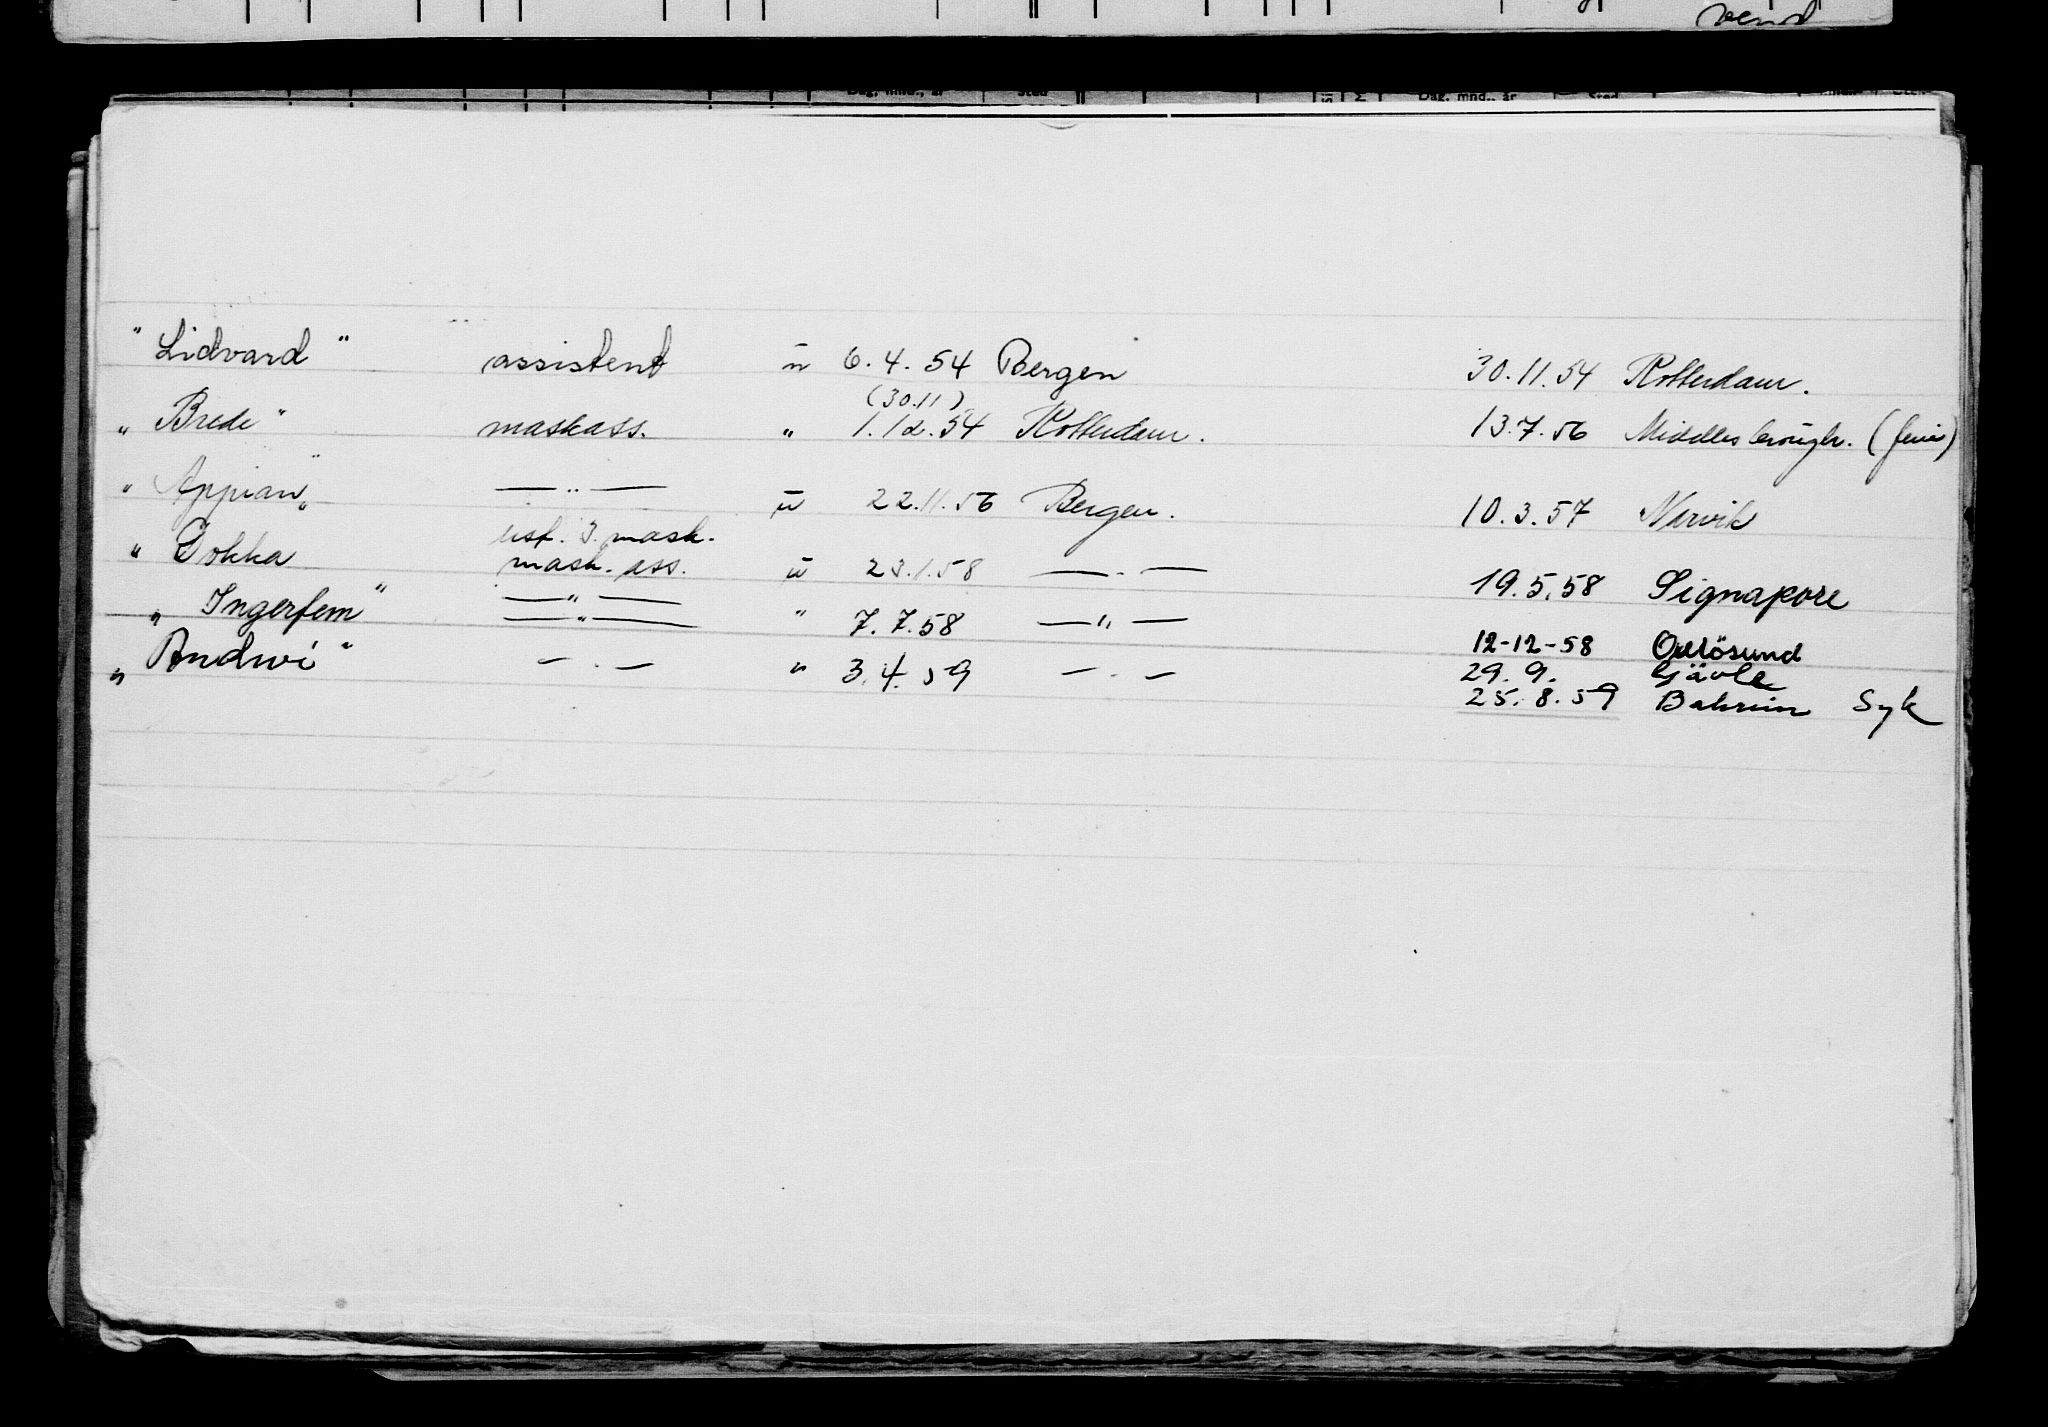 vend
Dag, mnd., år Sted Dag, mnd., år Sted
"Lidvard" assistent u 6.4.54 Bergen 30.11.54 Rotterdam.
(30.11)
"Brede" maskass. " 1.12.54 Rotterdam. 13.7.56 Middlesbrough. (ferie)
"Appian" —"— u 22.11.56 Bergen. 10.3.57 Narvik
usf. 3. mask.
"Gokka mask. ass. u 23.1.58 —"— 19.5.58 Signapore
—"—
"Ingerfem" —"— " 7.7.58 —"— 12-12-58 Oxlösund
"Andwi" —"— " 3.4.59 —"— 29.9. Gävle
25.8.59 Bahrein Syk